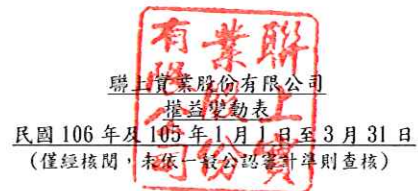 聯上實業股份有限公司
權益變動表
民國 106 年及 105 年 1 月 1 日至 3 月 31 日
(僅經核閱，未依一般公認審計準則查核)
聯上實業股份有限公司